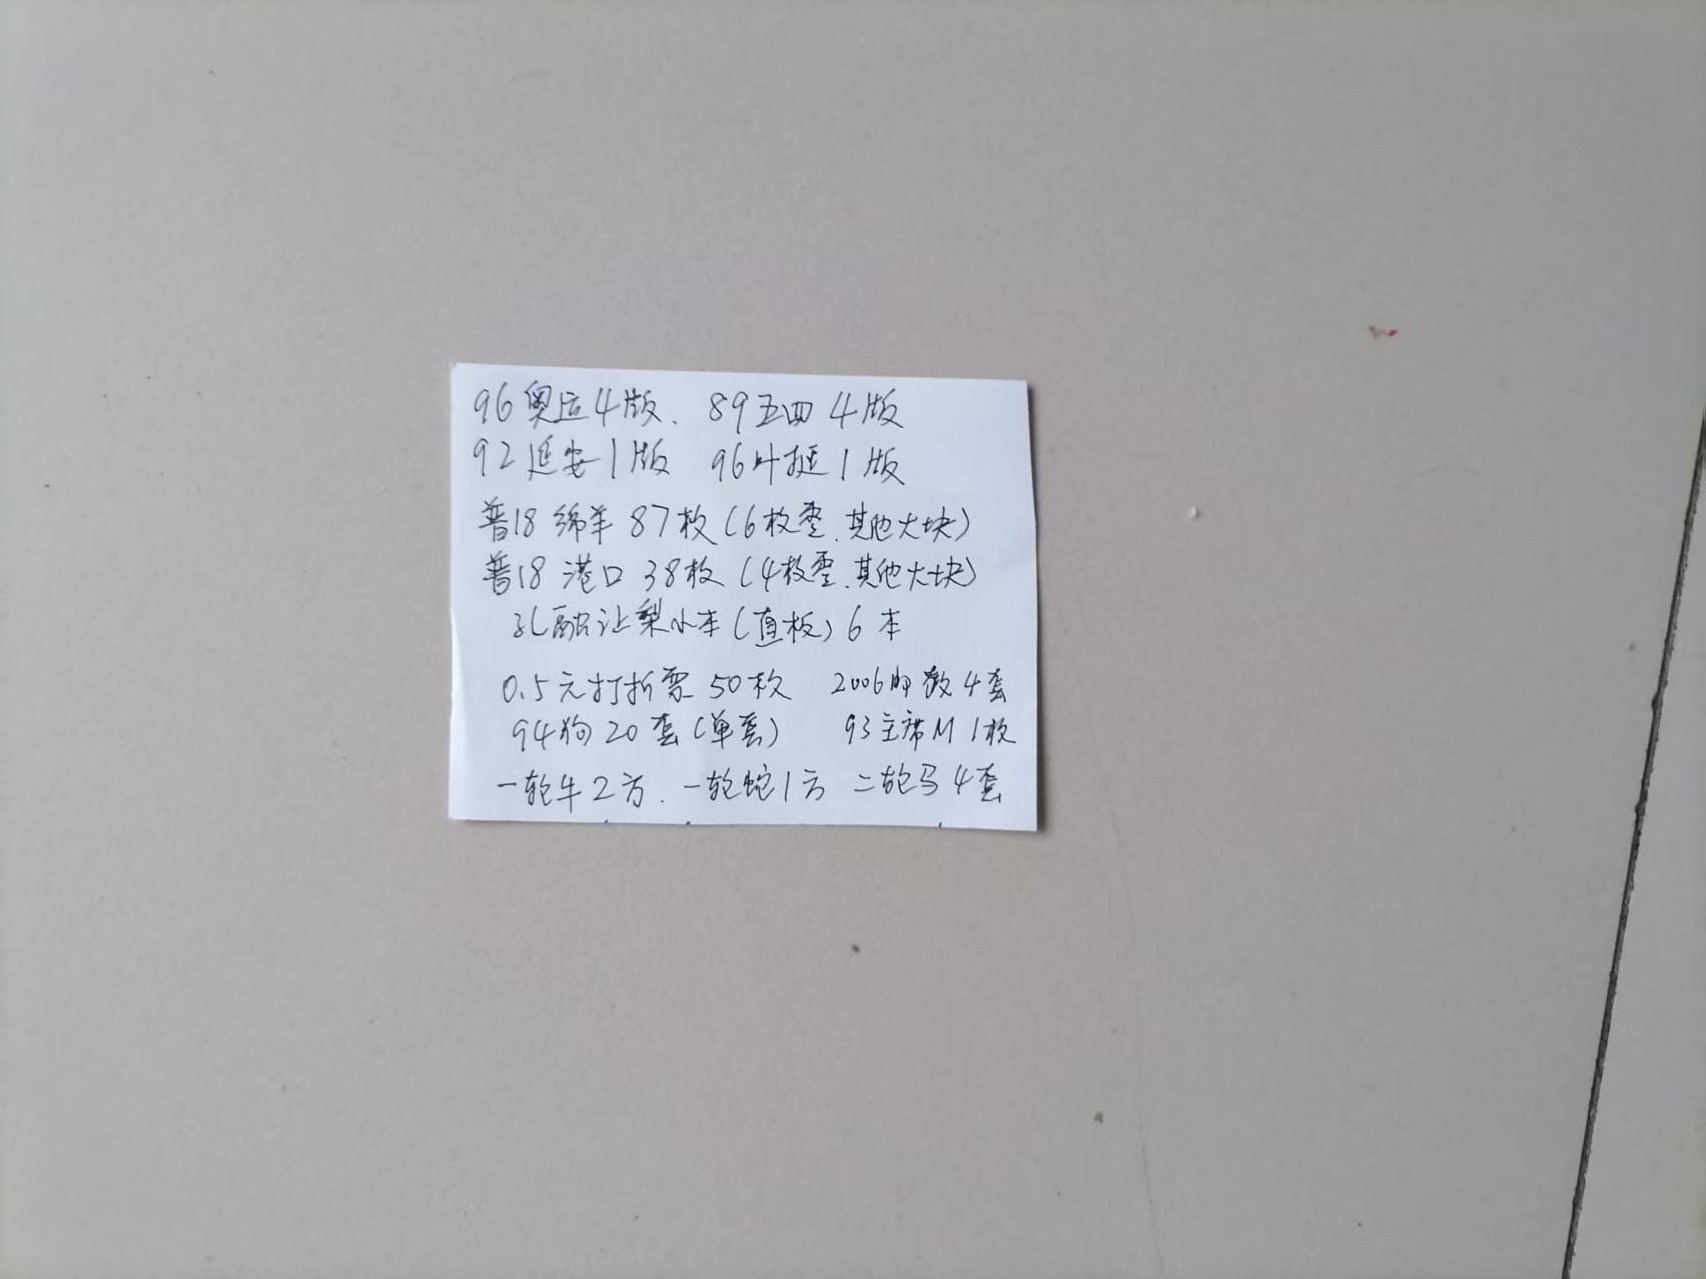 96奥运4版、 89五四4版
92延安1版 96叶挺1版
普18 绵羊 87枚(6枚零、其他大块)
普18 港口 38枚(4枚零、其他大块)
孔融让梨小本(直板) 6本
0.5元打折票 50枚 2006 4套
94狗20套(单套) 93主席M 1枚
一轮牛2方、一轮蛇1方 二轮马4套